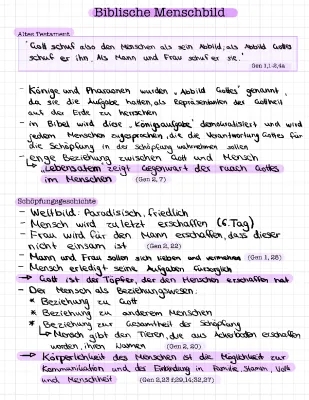 Biblische Menschbild
Altes Testament
"Gott schuf also den Menschen als sein Abbild; als Abbild Gottes
schuf er ihn. Als Mann und Frau schuf er sie."
Gen 1,1-2,4a
- Könige und Pharaonen wurden "Abbild Gottes" genannt,
da sie die Aufgabe hatten, als Repräsentaten der Gottheit
auf der Erde zu herrschen
- in Bibel wird diese "Königsaufgabe" demokratisiert und wird
jedem Menschen zugesprochen, die die Verantwortung Gottes für
die Schöpfung in der Schöpfung wahrnehmen sollen
- enge Beziehung zwischen Gott und Mensch
Lebensatem zeigt Gegenwart des ruach Gottes
im Menschen (Gen 2, 7)
Schöpfungsgeschichte
- Weltbild: Paradisisch, friedlich
- Mensch wird zuletzt erschaffen (6. Tag)
- Frau wird für den Mann erschaffen, dass dieser
nicht einsam ist (Gen 2, 22)
- Mann und Frau sollen sich lieben und vermehren (Gen 1, 28)
- Mensch erledigt seine Aufgaben fürsorglich
→ Gott ist der Töpfer, der den Menschen erschaffen hat
- Der Mensch als Beziehungswesen:
* Beziehung zu Gott
* Beziehung zu anderem Menschen
* Beziehung zur Gesamtheit der Schöpfung
↳ Mensch gibt den Tieren, die aus Ackerboden erschaffen
worden, ihren Namen (Gen 2, 20)
→ Körperlichkeit des Menschen ist die Möglichkeit zur
Kommunikation und der Einbindung in Familie, Stamm, Volk
und Menschheit (Gen 2,23 f; 29,14; 32,27)